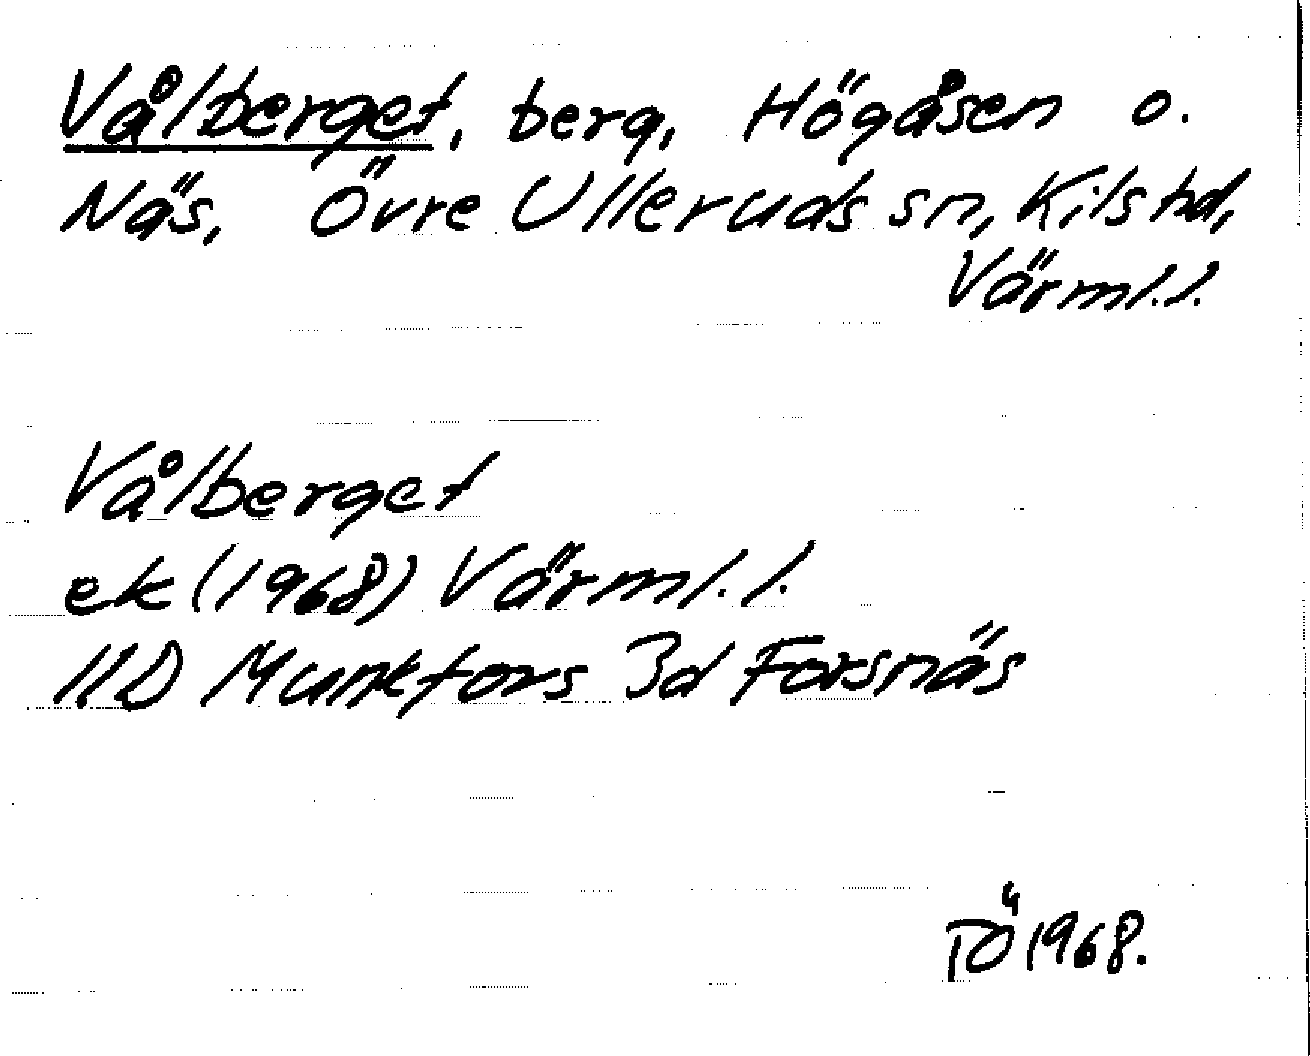 Vålberget, berg, Högåsen o.
Näs, Övre Ulleruds sn, Kils hd,
Värml. l.
Vålberget
ek (1968) Värml. l.
11D Munkfors 3d Forsnäs
TÖ 1968.